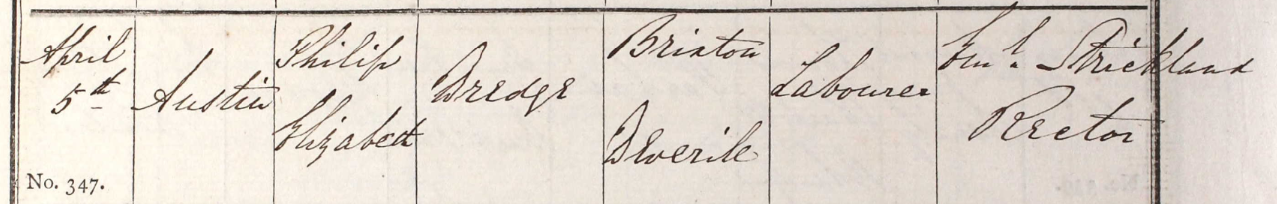 April
5th
No. 347.
Austin
Philip
Elizabeth
Bredge
Brixton
Deverile
Labourer
Strickland
Rector